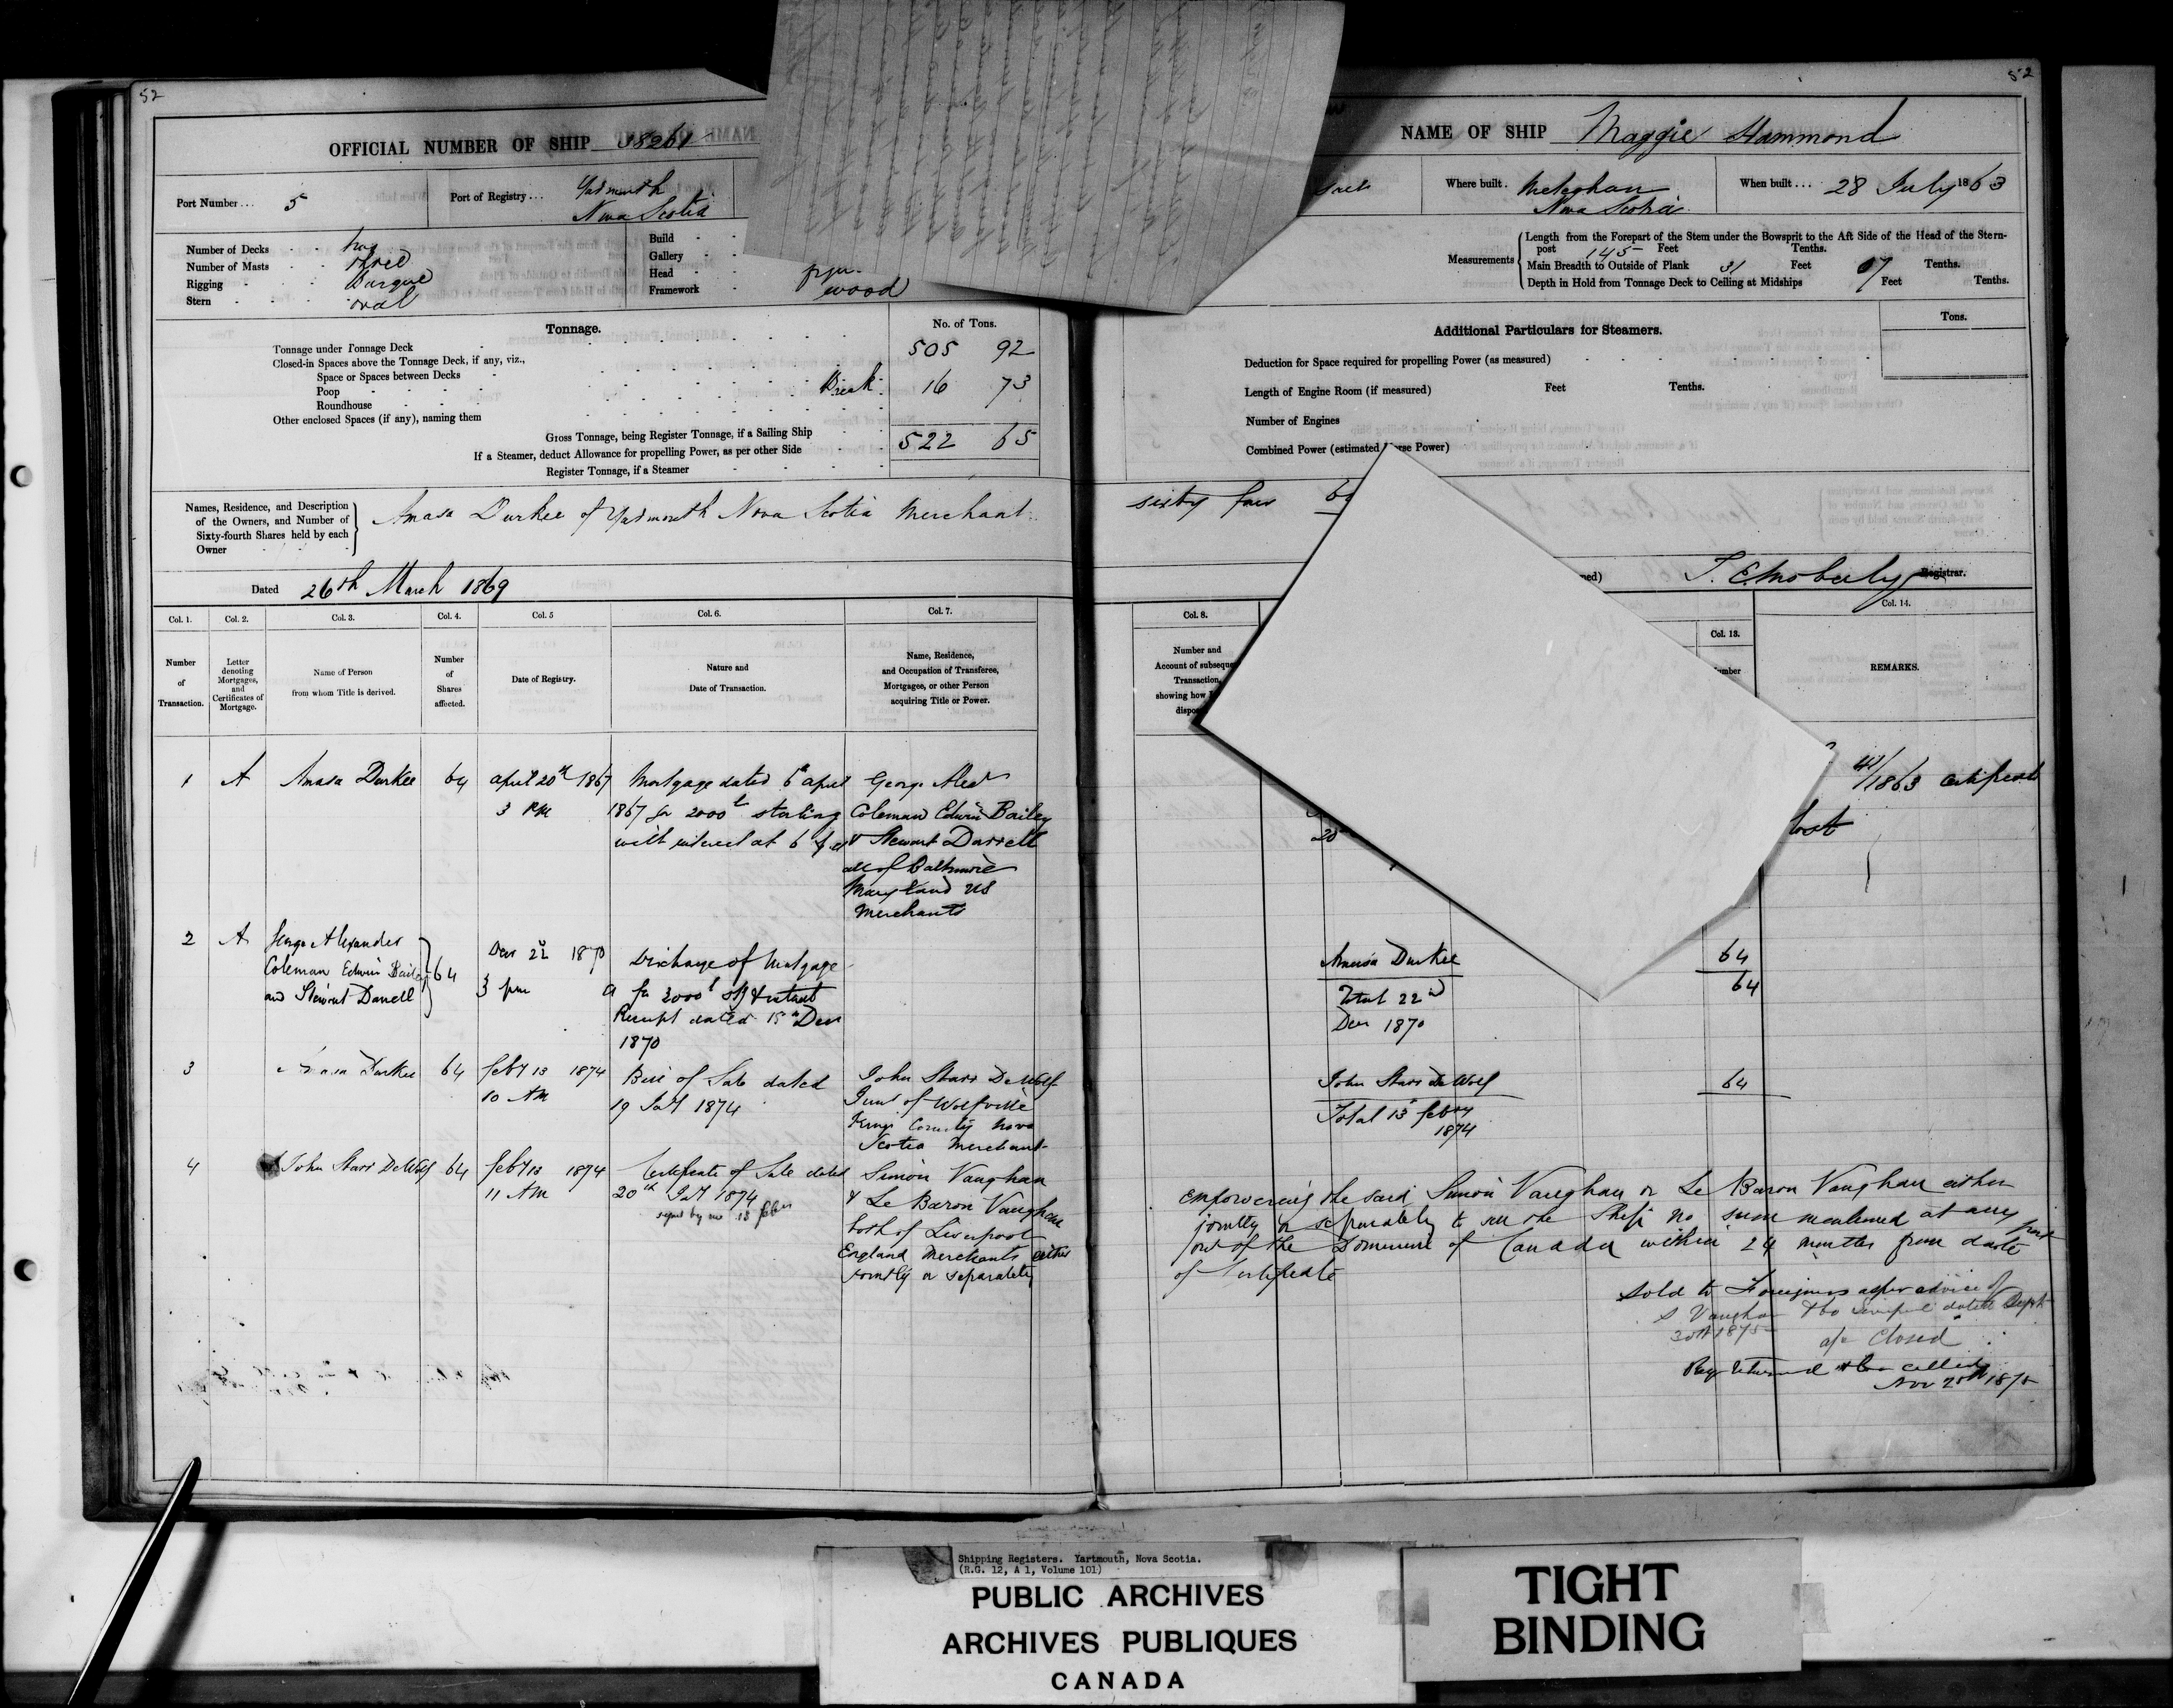 52
OFFICIAL NUMBER OF SHIP 38261
Port Number... 5
Port of Registry... Yarmouth
Nova Scotia
Number of Decks two
Number of Masts three
Rigging Barque
Stern oval
Build
Gallery
Head
Framework wood
Tonnage.
No. of Tons.
Tonnage under Tonnage Deck 505 92
Closed-in Spaces above the Tonnage Deck, if any, viz.,
Space or Spaces between Decks
Poop Break 16 73
Roundhouse
Other enclosed Spaces (if any), naming them
Gross Tonnage, being Register Tonnage, if a Sailing Ship 522 65
If a Steamer, deduct Allowance for propelling Power, as per other Side
Register Tonnage, if a Steamer
Names, Residence, and Description
of the Owners, and Number of
Sixty-fourth Shares held by each
Owner
Amasa Durkee of Yarmouth Nova Scotia Merchant
Dated 26th March 1869
Col. 1. Col. 2. Col. 3. Col. 4. Col. 5 Col. 6. Col. 7.
Number
of
Transaction.
Letter
denoting
Mortgages,
and
Certificates of
Mortgage.
Name of Person
from whom Title is derived.
Number
of
Shares
affected.
Date of Registry.
Nature and
Date of Transaction.
Name, Residence,
and Occupation of Transferee,
Mortgagee, or other Person
acquiring Title or Power.
1 A Amasa Durkee 64
april 20th 1867
3 PM
Mortgage dated 6th april
1867 for 2000£ sterling
with interest at 6
George Alexr
Coleman Edwin Bailey
& Stewart Darrell
all of Baltimore
Maryland US
Merchants
2 A George Alexander
Coleman Edwin Bailey
and Stewart Darrell
64
Decr 22 1870
3 pm
Discharge of Mortgage
A for 2000£ stg & interest
Receipt dated 15th Decr
1870
3 Amasa Durkee 64
feby 13 1874
10 AM
Bill of Sale dated
19 Jany 1874
John Starr DeWolf
Junr of Wolfville
Kings County Nova
Scotia Merchant
4 John Starr DeWolf 64
feby 13 1874
11 AM
Certificate of Sale dated
20th Jany 1874
signed by me 13 feby
Simon Vaughan
& Le Baron Vaughan
both of Liverpool
England Merchants either
jointly or separately
52
NAME OF SHIP Maggie Hammond
Where built. Meteghan
Nova Scotia
When built... 28 July 1863
Measurements
Length from the Forepart of the Stem under the Bowsprit to the Aft Side of the Head of the Stern-
post 145 Feet Tenths.
Main Breadth to Outside of Plank 31 Feet 07 Tenths.
Depth in Hold from Tonnage Deck to Ceiling at Midships Feet Tenths.
Additional Particulars for Steamers.
Tons.
Deduction for Space required for propelling Power (as measured)
Length of Engine Room (if measured) Feet Tenths.
Number of Engines
Combined Power (estimated
rse Power)
sixty four 64
T. E. Moberly Registrar.
Col. 8. Col. 13. Col. 14.
Number and
Account of subseque
Transaction,
showing how
dispos
mber
REMARKS.
1863 certificate
lost
20
Amasa Durkee 64
Total 22nd 64
Decr 1870
John Starr DeWolf 64
Total 13 feby
1874
Empowering the said Simon Vaughan or Le Baron Vaughan either
jointly or separately to sell the Ship no sum mentioned at any port
out of the Dominion of Canada within 24 months from date
of Certificate
Sold to Foreigners as per advice of
S Vaughan & Co Liverpool dated Sept
30th 1875 a/c Closed
Reg returned & cancelled
Nov 25th 1875
Shipping Registers. Yartmouth, Nova Scotia.
(R.G. 12, A 1, Volume 101)
PUBLIC ARCHIVES
ARCHIVES PUBLIQUES
CANADA
TIGHT
BINDING